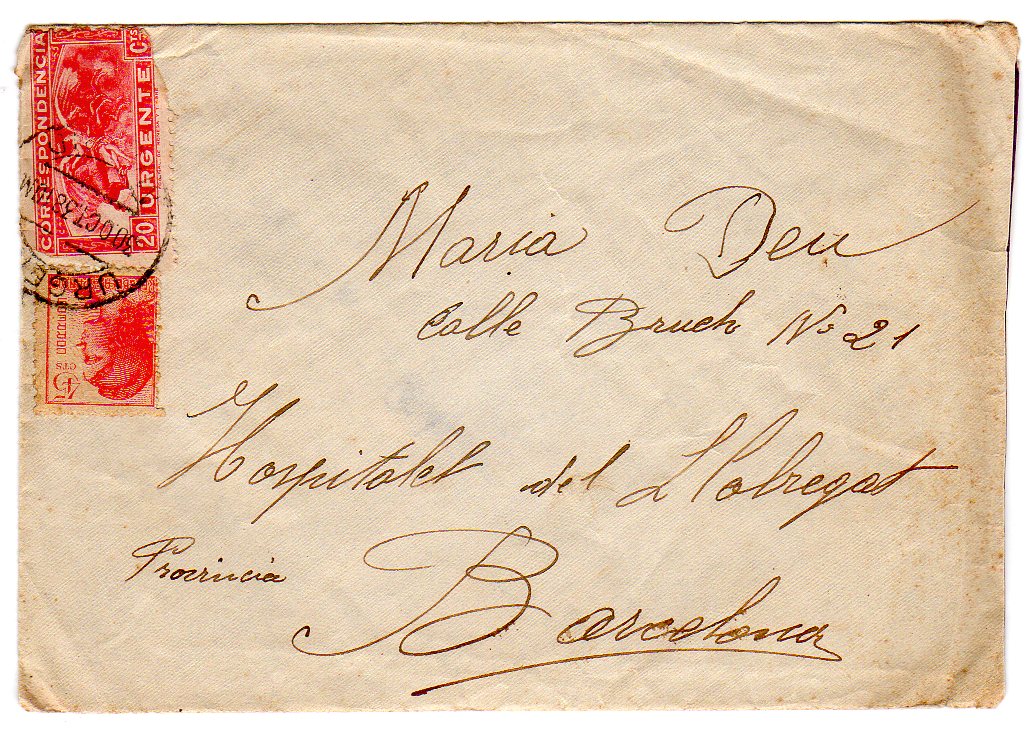 CORRESPONDENCIA
URGENTE
20 Cts
30 OCT 38
URGE
45 CTS
Maria Deu
Calle Bruch No 21
Hospitalet del Llobregat
Provincia Barcelona